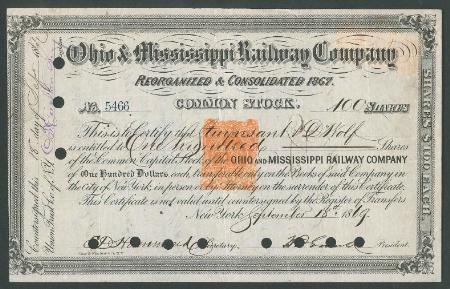 Ohio & Mississippi Railway Company
REORGANIZED & CONSOLIDATED 1867.
COMMON STOCK.
No. 5466 100 SHARES
This is to Certify that Wolf
is entitled to One Hundred Shares
of the Common Capital Stock of the OHIO AND MISSISSIPPI RAILWAY COMPANY
of One Hundred Dollars each, transferable only on the Books of said Company in
the City of New York, in person or by Attorney on the surrender of this Certificate.
This Certificate is not valid until countersigned by the Register of Transfers
New York September 18th 1869
Secretary. President.
Countersigned this 18 day of Sep 186
Union Trust Co. of N.Y.
SHARES $100 EACH.